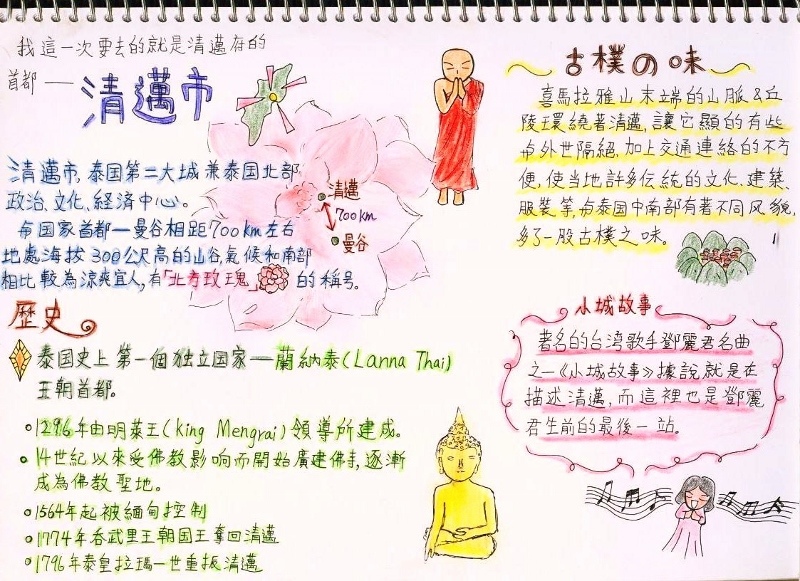 我這一次要去的就是清邁府的
首都——
清邁市
清邁市,泰国第二大城兼泰国北部
政治、文化、経済中心。
与国家首都—曼谷相距700km左右
地處海拔300公尺高的山谷,氣候和南部
相比較為涼爽宜人,有「北方玫瑰」的稱号。
清邁
700km
曼谷
歷史
泰国史上第一個独立国家—蘭納泰(Lanna Thai)
王朝首都。
1296年由明萊王(king Mengrai)領導所建成。
14世紀以來受佛教影响而開始廣建佛寺,逐漸
成為佛教聖地。
1564年起被緬甸控制
1774年吞武里王朝国王奪回清邁
1796年泰皇拉瑪一世重振清邁
古樸の味
喜馬拉雅山末端的山脈&丘
陵環繞著清邁,讓它顯的有些
与外世隔絕,加上交通連絡的不方
便,使当地許多伝統的文化、建築、
服裝等,与泰国中南部有著不同风貌,
多了一股古樸之味。
小城故事
著名的台湾歌手鄧麗君名曲
之一《小城故事》據說就是在
描述清邁,而這裡也是鄧麗
君生前的最後一站。